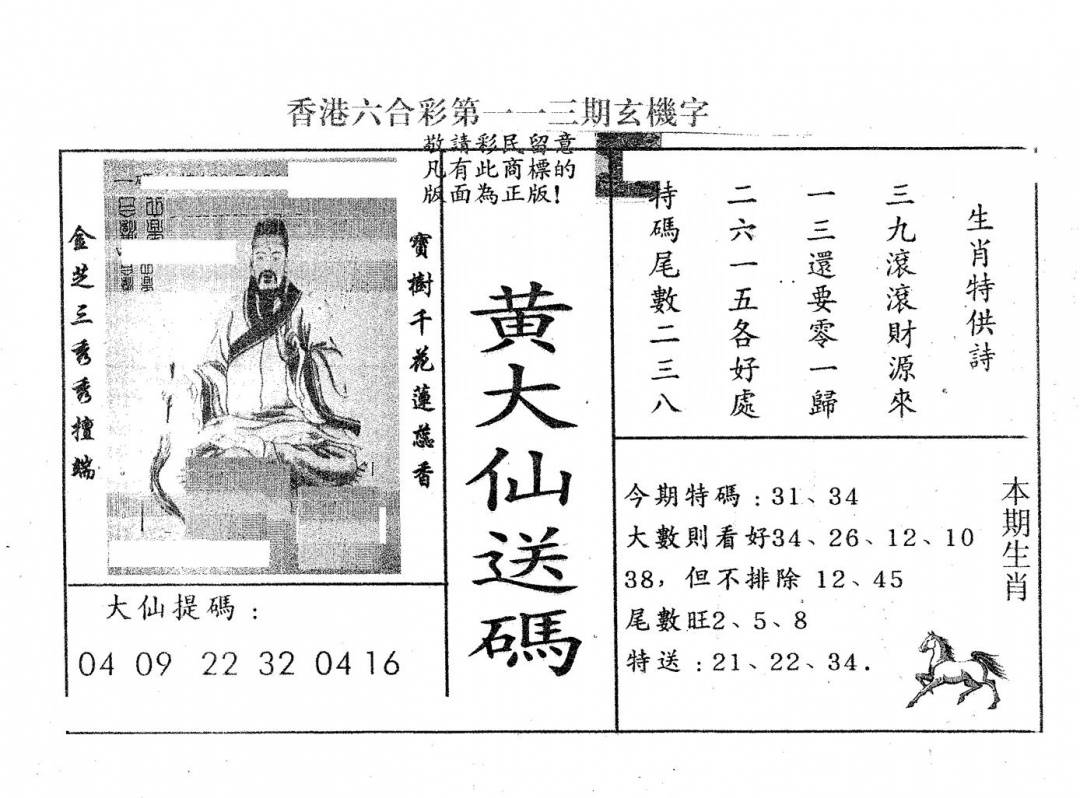 香港六合彩第一一三期玄機字
敬請彩民留意
凡有此商標的
版面為正版！
金芝三秀秀擅端
寶樹千花蓮蕊香
黄大仙送碼
生肖特供詩
三九滾滾財源來
一三還要零一歸
二六一五各好處
特碼尾數二三八
大仙提碼：
04 09 22 32 04 16
今期特碼：31、34
大數則看好34、26、12、10
38，但不排除 12、45
尾數旺2、5、8
特送：21、22、34.
本期生肖